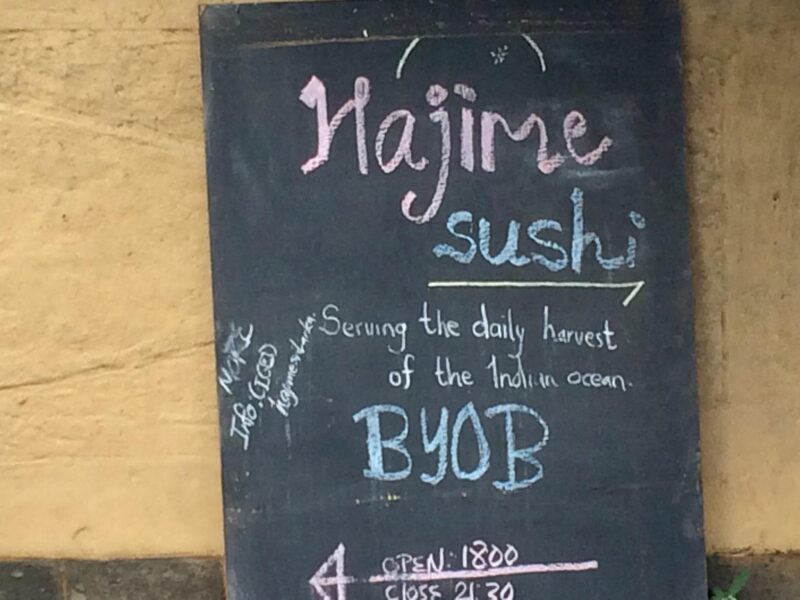 Hajime
sushi
Serving the daily harvest
of the Indian ocean.
BYOB
MORE
Info:
OPEN: 1800
CLOSE 21:30